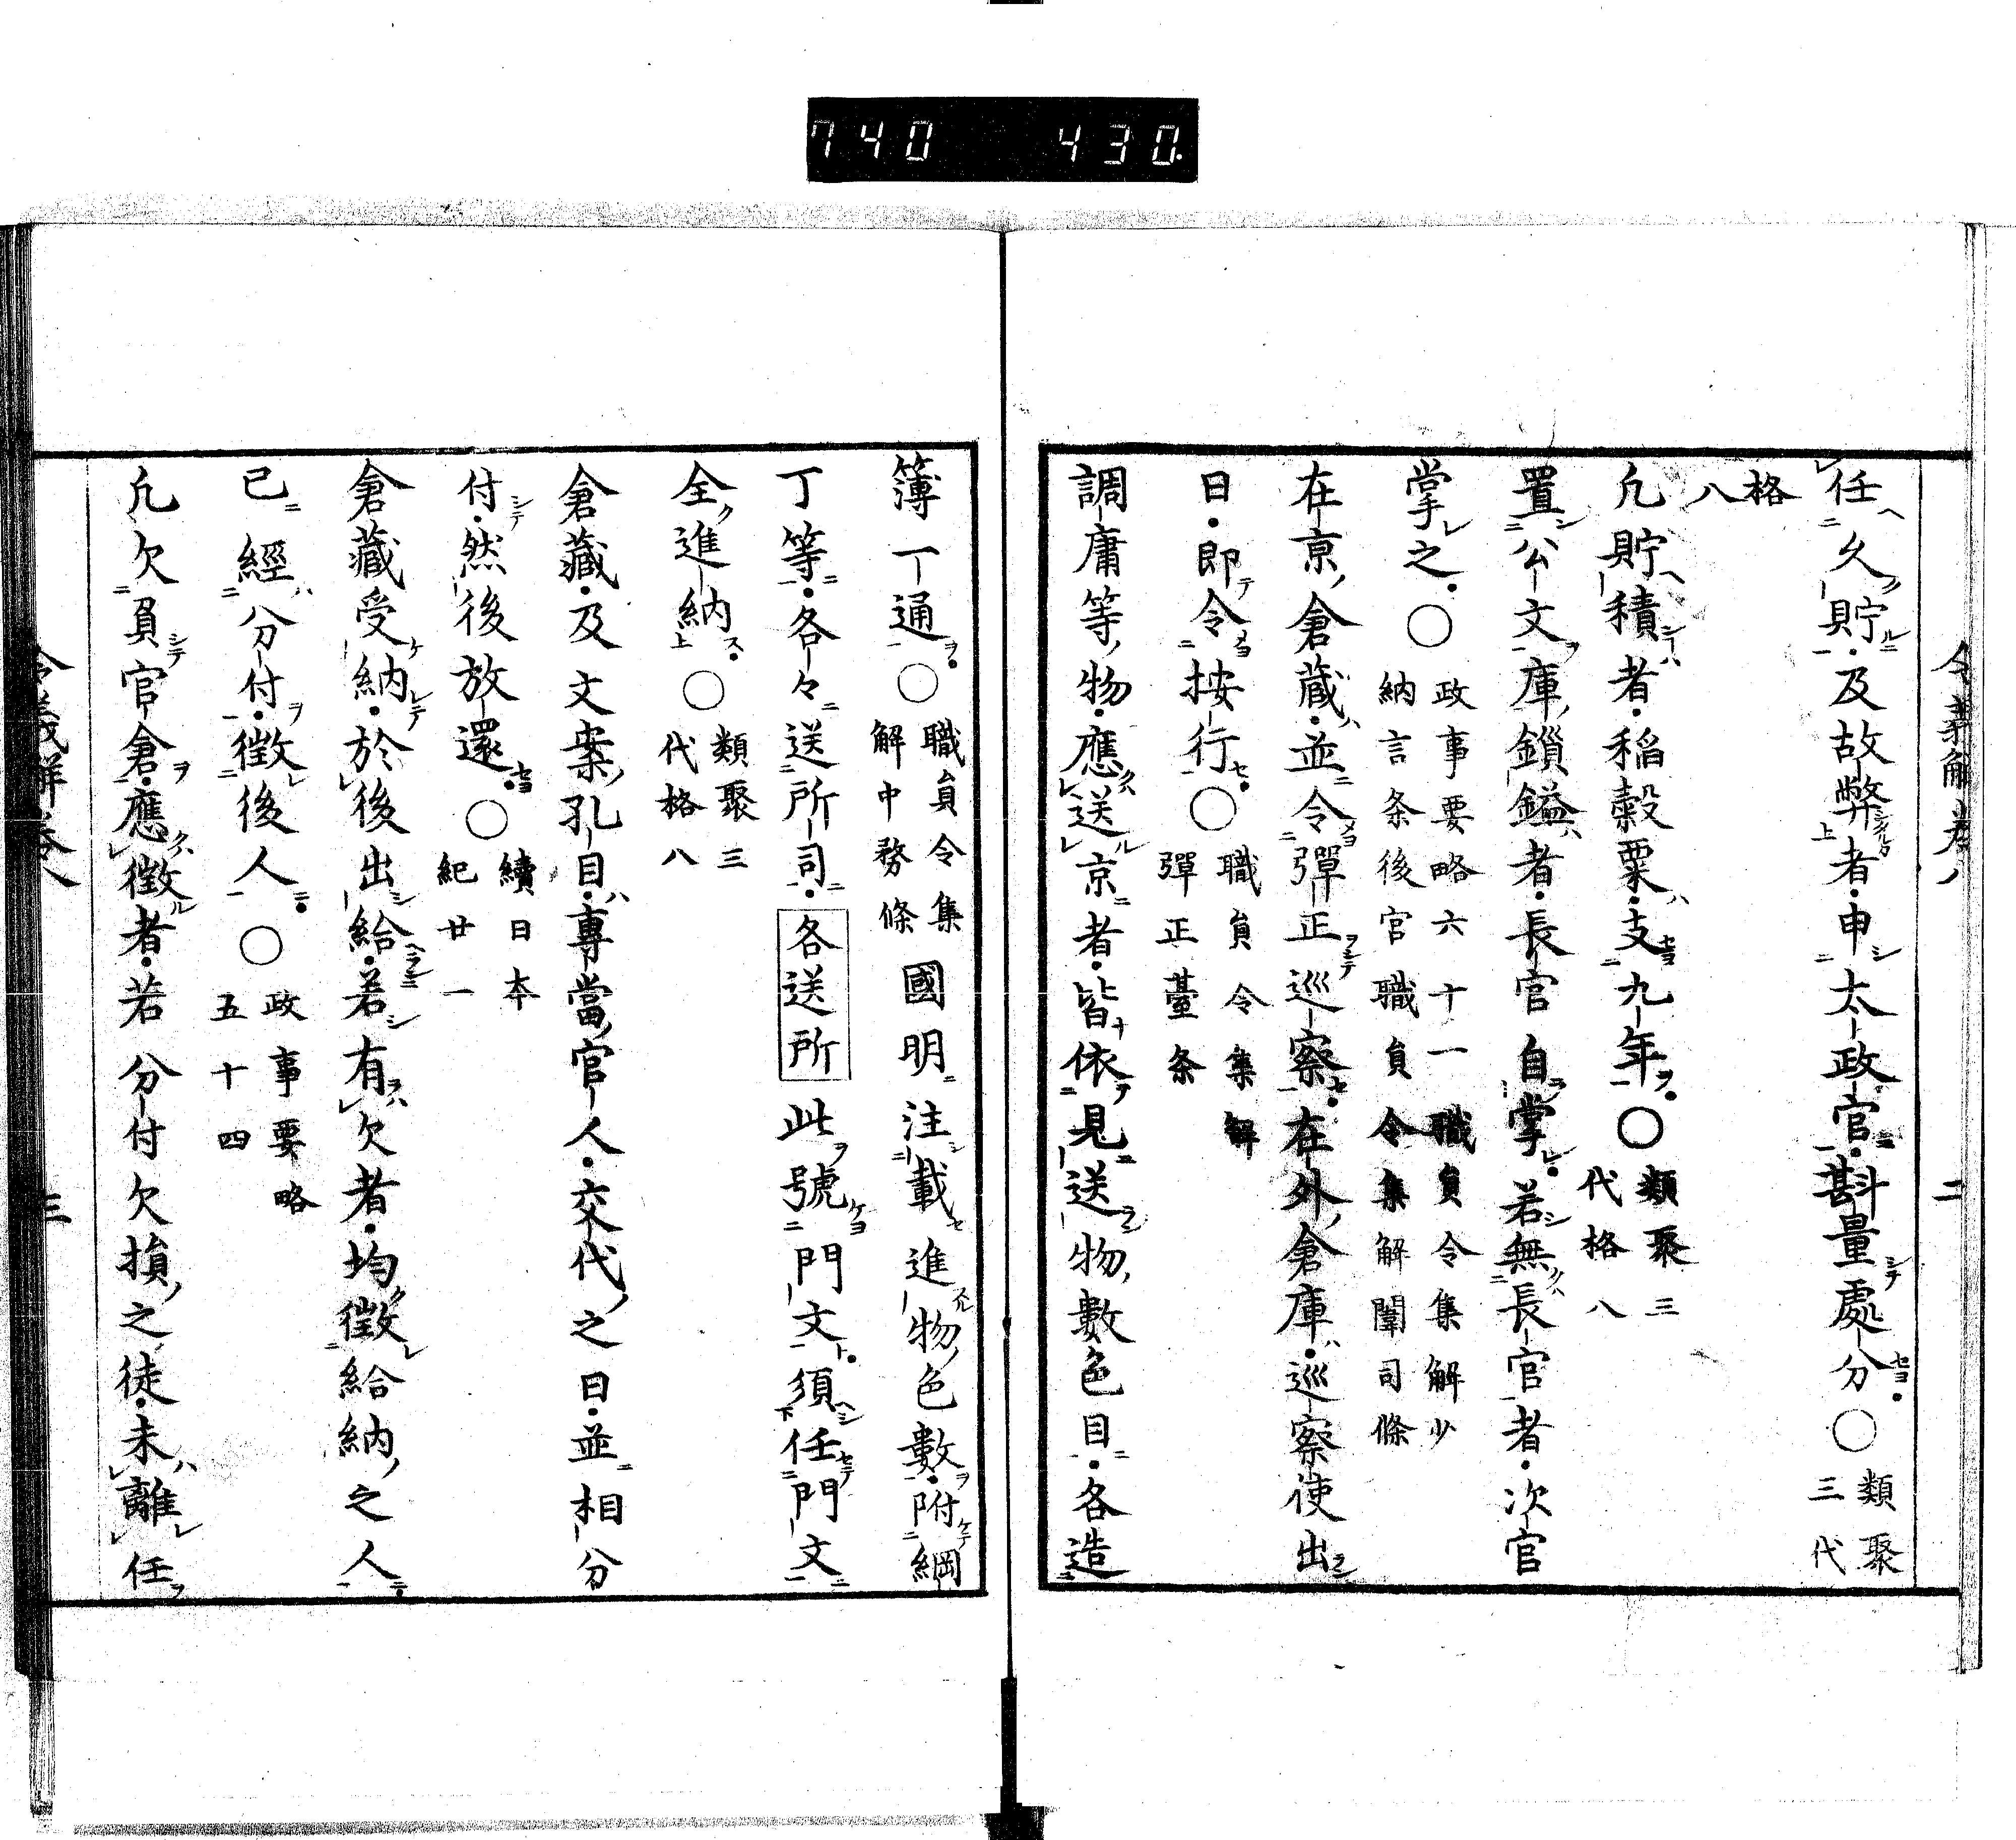 740 430.
令義解卷八 二
任久貯及故弊者申太政官斟量處分〇類聚三代
格八
凢貯積者稻糓粟支九年〇類聚三代格八
置公文庫鎖鎰者長官自掌若無長官者次官
掌之〇政事要略六十一職員令集解少納言条後官職員令集解闈司條
在京倉蔵並令彈正巡察在外倉庫巡察使出
日即令按行〇職員令集解彈正臺条
調庸等物應送京者皆依見送物數色目各造
簿一通〇職員令集解中務條國明注載進物色數附綱
丁等各々送所司各送所此號門文須任門文
全進納〇類聚三代格八
倉藏及文案孔目專當官人交代之日並相分
付然後放還〇續日本紀廿一
倉藏受納於後出給若有欠者均徵給納之人
已經分付徵後人〇政事要略五十四
凢欠負官倉應徵者若分付欠損之徒未離任
令義解卷八 三